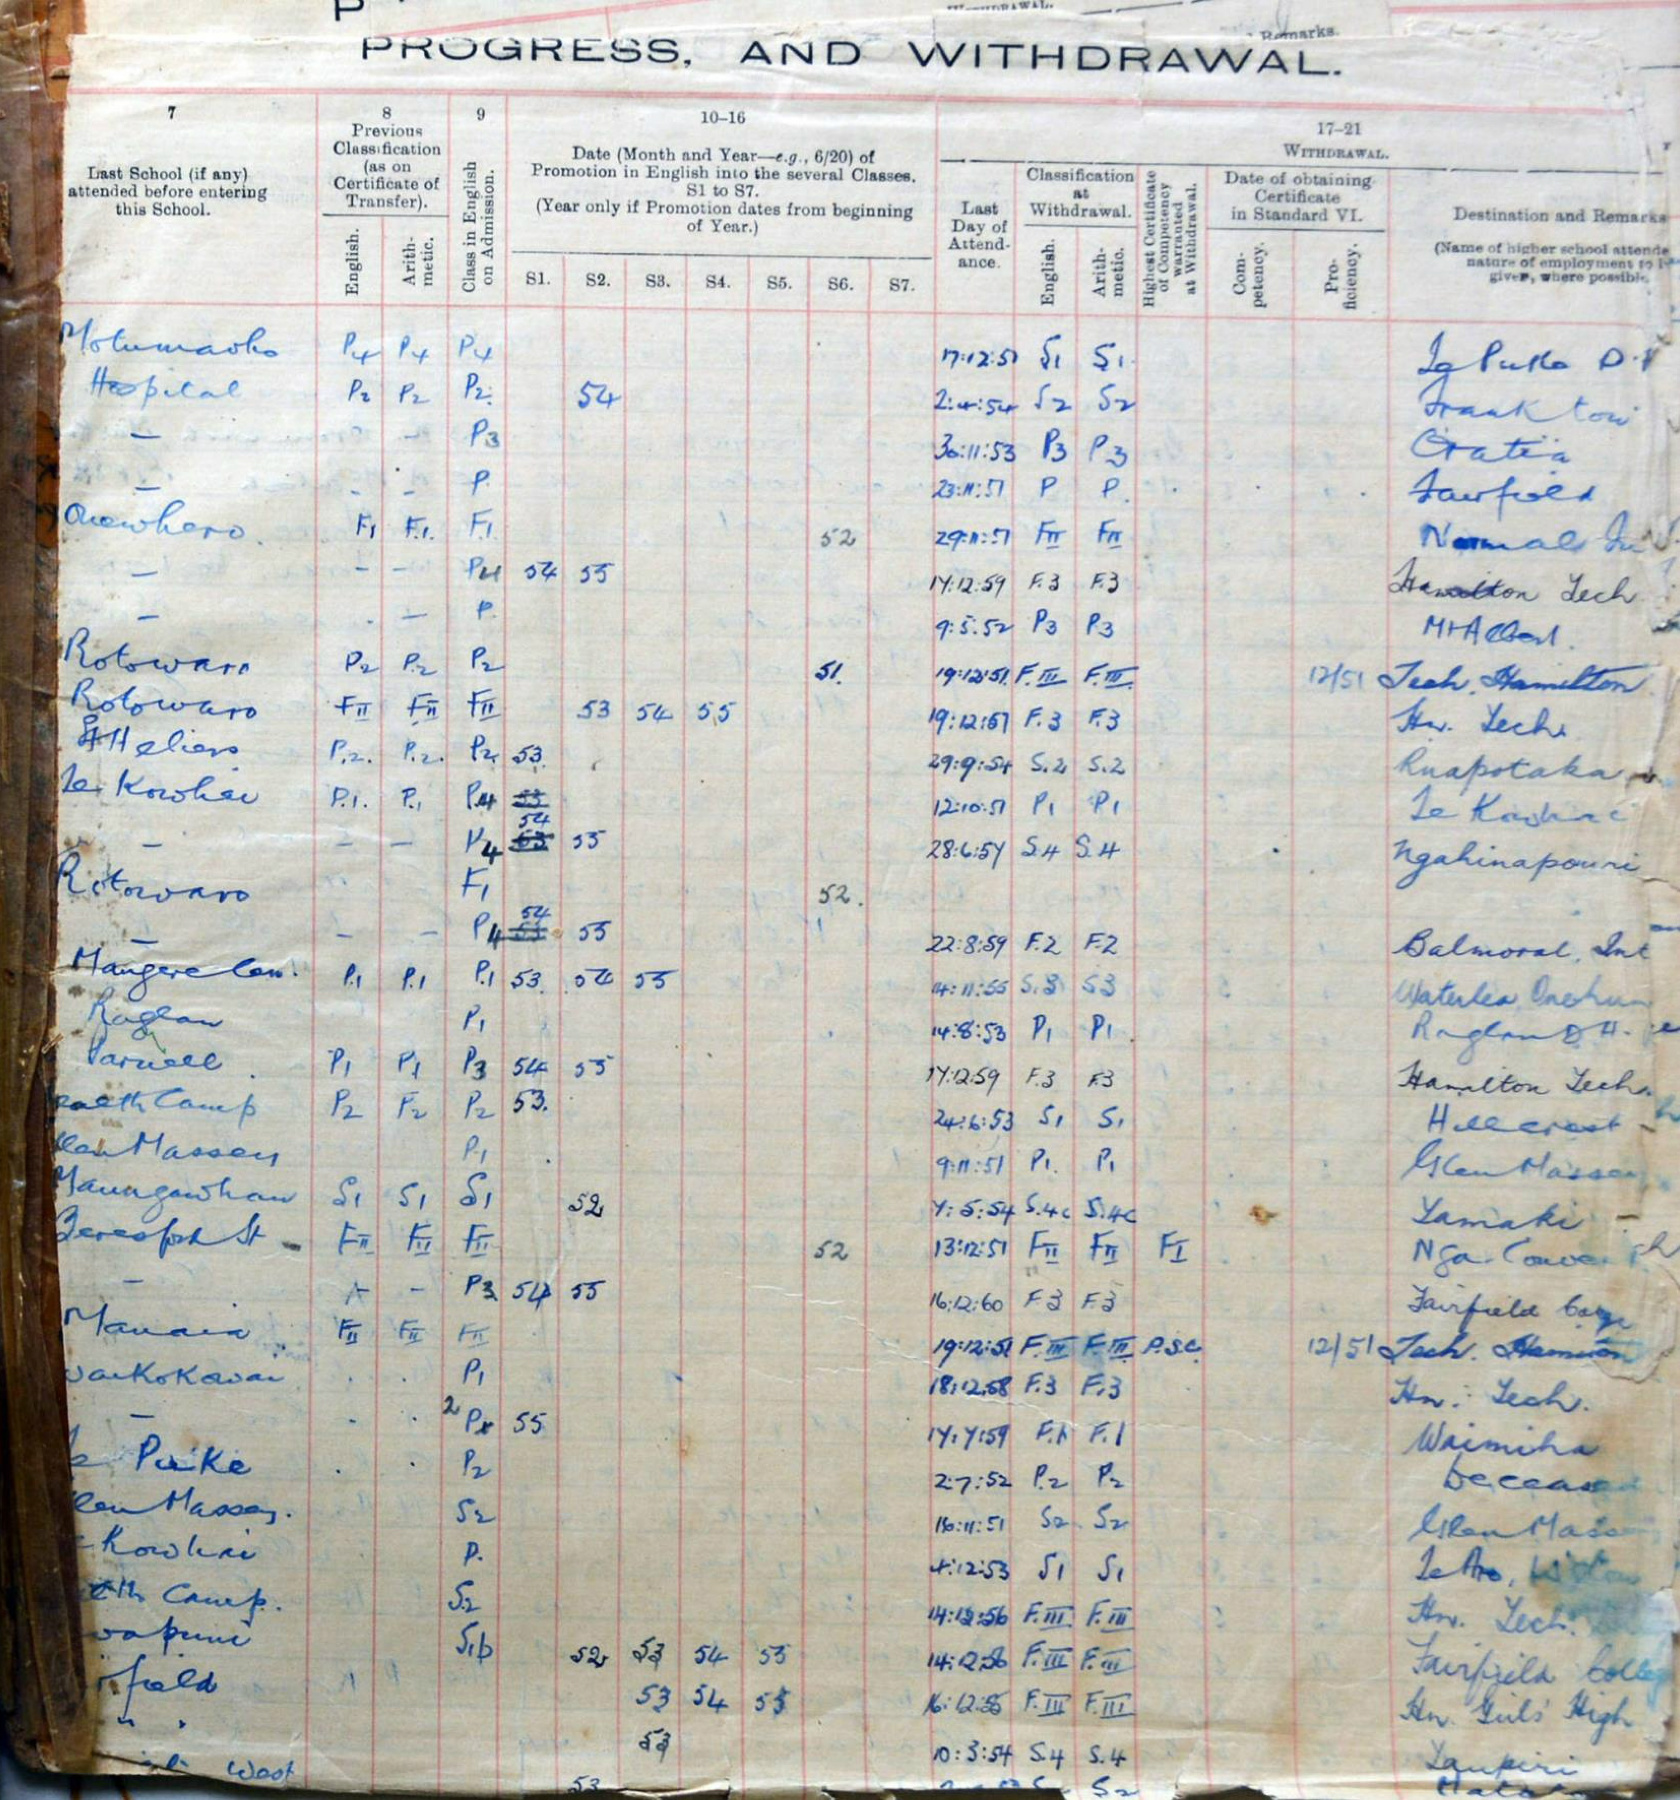 PROGRESS, AND WITHDRAWAL.
7 8 9 10–16 17–21
Last School (if any) attended before entering this School.
Previous Classification (as on Certificate of Transfer).
English. Arith-metic.
Class in English on Admission.
Date (Month and Year—e.g., 6/20) of Promotion in English into the several Classes, S1 to S7.
(Year only if Promotion dates from beginning of Year.)
S1. S2. S3. S4. S5. S6. S7.
WITHDRAWAL.
Last Day of Attend-ance.
Classification at Withdrawal.
English. Arith-metic.
Highest Certificate of Competency warranted at Withdrawal.
Date of obtaining Certificate in Standard VI.
Com-petency. Pro-ficiency.
Destination and Remarks
(Name of higher school attende
nature of employment to b
given, where possible.
P4 P4 P4 17:12:51 S1 S1. Te Puke D.
Hospital P2 P2 P2. 54 2:4:54 S2 S2 Frankton
— – P3 30:11:53 P3 P3 Oratia
— – – P. 23:11:51 P P. Fairfield
F1 F.1. F1. 52 29:11:51 FII FII Normal
— – – P4 54 55 17:12:59 F.3 F.3 Hamilton Tech
— – P. 9:5.52 P3 P3 Mt Albert.
Rotowaro P2 P.2 P2 51. 19:12:51. F.III F.III. 12/51 Tech. Hamilton
Rotowaro FII FII FII 53 54 55 19:12:57 F.3 F.3 Hn. Tech.
St Heliers P.2. P.2. P2 53. 29:9:54 S.2 S.2 Ruapotaka
Te Kowhai P.1. P.1 P4 53 12:10:51 P1 P1 Te Kowhai
— – – P4 54 53 55 28:6:57 S.4 S.4 Ngahinapouri
Rotowaro F1 52.
— – – P4 54 53 55 22:8:59 F.2 F.2 Balmoral. Int
Mangere Cen. P.1 P.1 P.1 53. 54 55 14:11:55 S.3 S3 Waterlea
Raglan P1 14:8:53 P1 P1. Raglan D.H.
Parnell. P1 P1 P3 54 55 17:12:59 F.3 F3 Hamilton Tech.
ealth Camp P2 P2 P2 53. 24:6:53 S1 S1 Hillcrest –
len Massey P1 9:11:51 P1. P1 Glen Massey
S1 S1 S1 52 7:5:54 S.4c S.4c Tamaki –
Beresford St FII FII FII 52 13:12:51 FII FII FI Nga.
— – P3 54 55 16:12:60 F.3 F.3 Fairfield
Manaia FII FII FII 19:12:51 F.III F.III P.S.C. 12/51 Tech. Hamilton
P1 18:12.58 F.3 F.3 Hn. Tech.
— 2 P1 55 17:7:59 F.1 F.1 Waimiha
Puke P2 2:7:52 P.2 P2 Deceased
len Massey. S2 16:11:51 S2 S2 Glen Mass
Kowhai P. 4:12:53 S1 S1 Te Aro,
th Camp. S.2 14:12:56 F.III F.III Hn. Tech.
S1b 52 53 54 55 14:12:56 F.III F.III Fairfield Colleg
rfield 53 54 55 16:12:55 F.III F.III Hn. Girls' High
" 53 10:3:54 S.4 S.4 Taupiri
West 53 S2